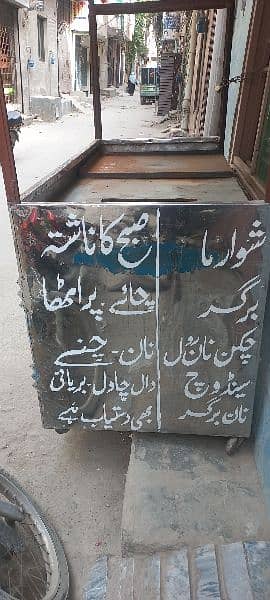 شوارما
برگر
چکن نان رول
سینڈوچ
نان برگر
صبح کا ناشتہ
چائے - پراٹھا
نان - چنے
دال چاول - بریانی
بھی دستیاب ہے